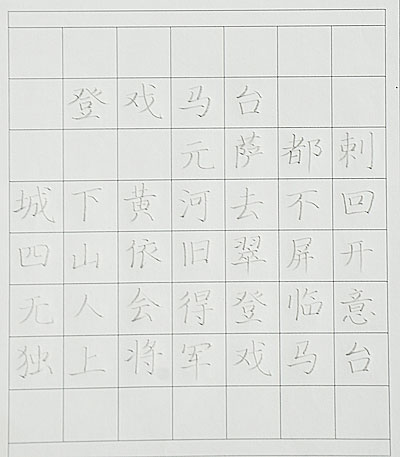 登戏马台
元萨都刺
城下黄河去不回
四山依旧翠屏开
无人会得登临意
独上将军戏马台